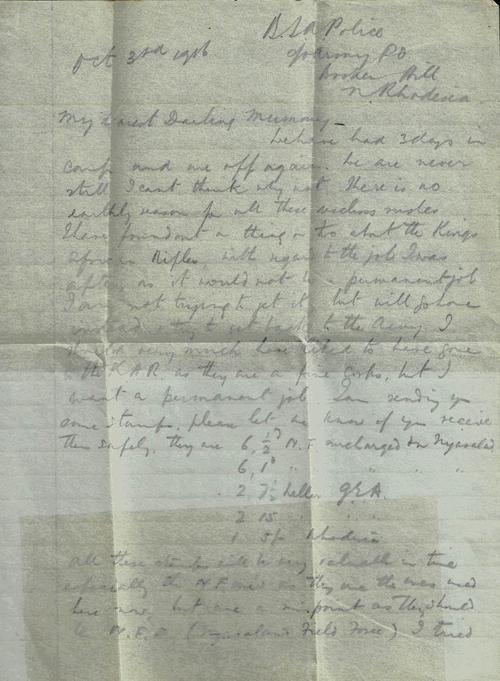 B.S.A Police
Oct 3rd 1916
c/o Army P.O
Broken Hill
N Rhodesia
My dearest Darling Mummy
We have had 3 days in
camp and are off again. We are never
still I cant think why not. There is no
earthly reason for all these useless
I have found out a thing or two about the Kings
African Rifles, with regard to the job I was
after, as it would not be a permanent job
I am not trying to get it, but will
try to get back to the Army. I
should very much have liked to have gone
to the K.A.R. as they are a fine corps, but I
want a permanent job. I am sending you
some stamps, please let me know if you receive
them safely, they are 6, ½d N.F. surcharged on Nyasaland
6, 1d " " " "
2, 7½ heller G.E.A.
2 15 "
1 5/- Rhodesia
All these stamps will be very valuable in time
especially the N.F. ones as they are the ones used
here now, but are a misprint as they should
be N.F.F. (Nyasaland Field Force) I tried